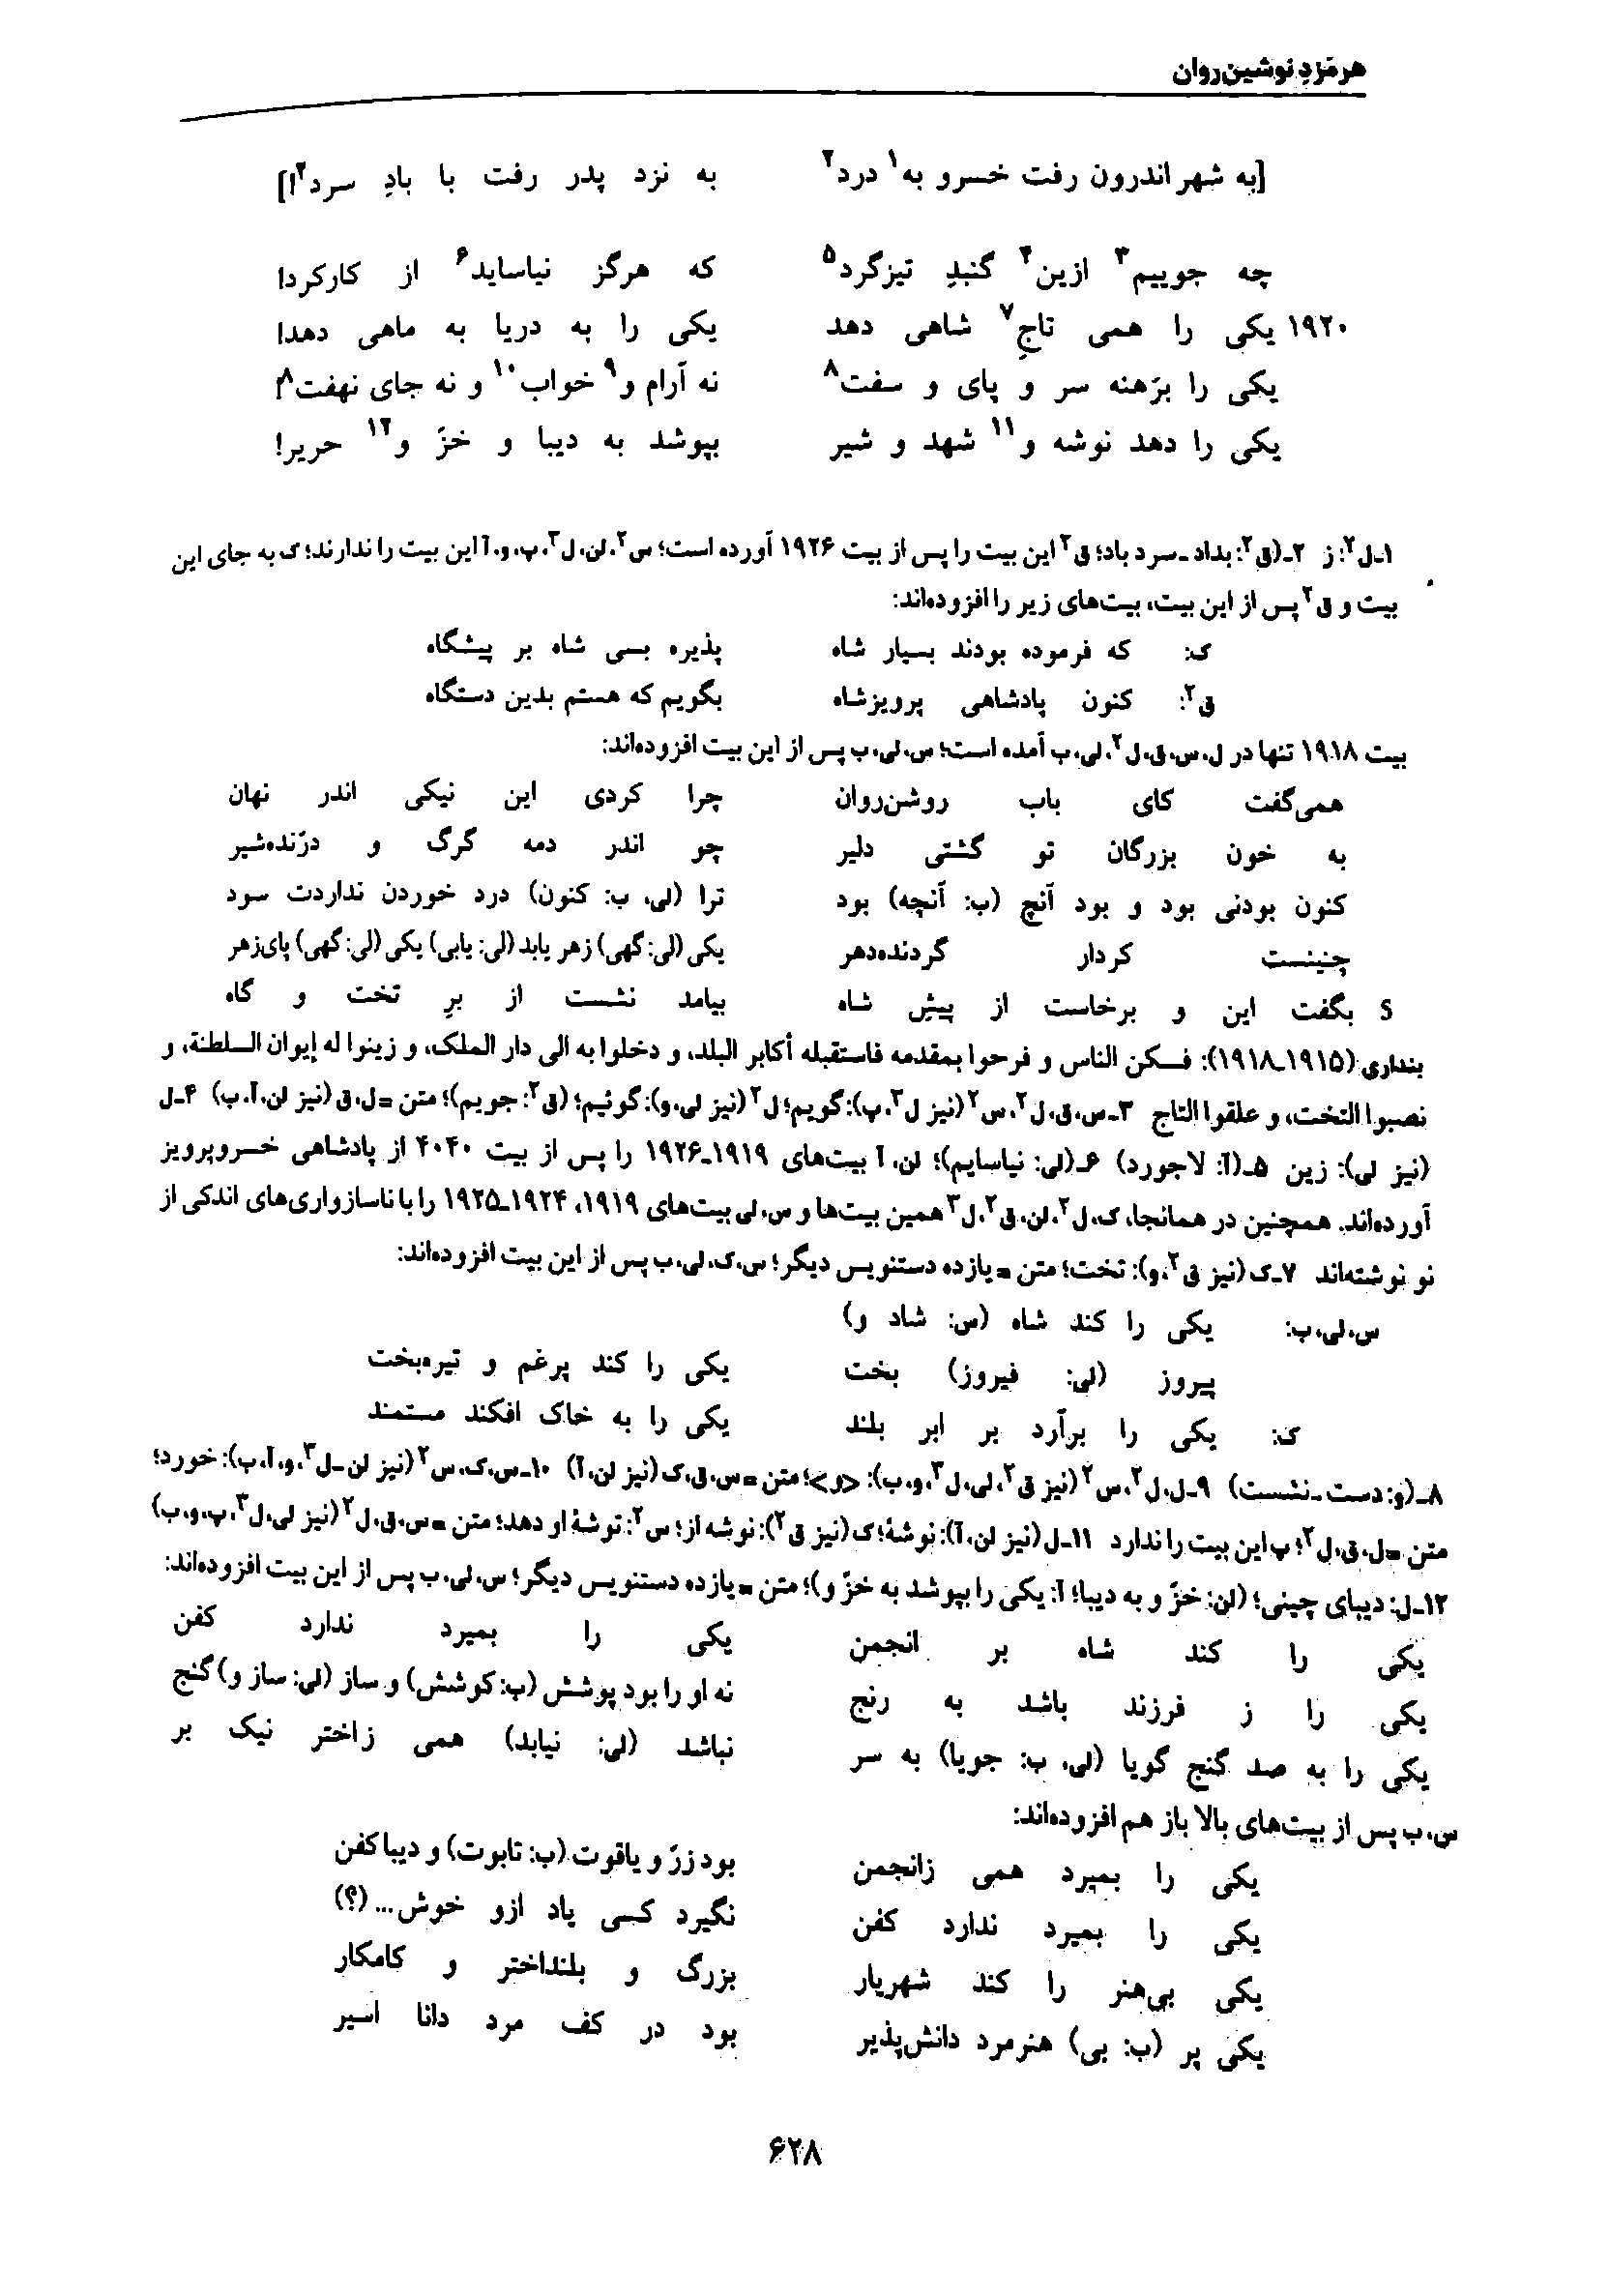 هرمزدِ نوشین‌روان
[به شهر اندرون رفت خسرو به۱ درد۲ به نزد پدر رفت با بادِ سرد۲!]
چه جوییم۳ ازین۴ گنبدِ تیزگرد۵ که هرگز نیاساید۶ از کارکرد!
۱۹۲۰ یکی را همی تاجِ۷ شاهی دهد یکی را به دریا به ماهی دهد!
یکی را بَرهنه سر و پای و سفت۸ نه آرام و۹ خواب۱۰ و نه جای نهفت۸!
یکی را دهد نوشه و۱۱ شهد و شیر بپوشد به دیبا و خزّ و۱۲ حریر!
۱ـ ل۲: ز ۲ـ (ق۲: بداد ـ سرد باد؛ ق۲ این بیت را پس از بیت ۱۹۲۶ آورده است؛ س۲، لن، ل۳، پ، و، آ این بیت را ندارند؛ ک به جای این
بیت و ق۲ پس از این بیت، بیت‌های زیر را افزوده‌اند:
ک: که فرموده بودند بسیار شاه پذیره بسی شاه بر پیشگاه
ق۲: کنون پادشاهی پرویزشاه بگویم که هستم بدین دستگاه
بیت ۱۹۱۸ تنها در ل، س، ق، ل۲، لی، ب آمده است؛ س، لی، ب پس از این بیت افزوده‌اند:
همی‌گفت کای باب روشن‌روان چرا کردی این نیکی اندر نهان
به خون بزرگان تو گشتی دلیر چو اندر دمه گرگ و درّنده‌شیر
کنون بودنی بود و بود آنچ (ب: آنچه) بود ترا (لی، ب: کنون) درد خوردن نداردت سود
چنینست کردار گردنده‌دهر یکی (لی: گهی) زهر یابد (لی: یابی) یکی (لی: گهی) پای‌زهر
5 بگفت این و برخاست از پیشِ شاه بیامد نشست از برِ تخت و گاه
بنداری (۱۹۱۵ـ۱۹۱۸): فسکن الناس و فرحوا بمقدمه فاستقبله أکابر البلد، و دخلوا به الی دار الملک، و زینوا له إیوان السلطنة، و
نصبوا التخت، و علقوا التاج ۳ـ س، ق، ل۲، س۲ (نیز ل۳، پ): گویم؛ ل۲ (نیز لی، و): گوئیم؛ (ق۲: جویم)؛ متن = ل، ق (نیز لن، آ، ب) ۴ـ ل
(نیز لی): زین ۵ـ (آ: لاجورد) ۶ـ (لی: نیاسایم)؛ لن، آ بیت‌های ۱۹۱۹ـ۱۹۲۶ را پس از بیت ۴۰۴۰ از پادشاهی خسروپرویز
آورده‌اند. همچنین در همانجا، ک، ل۲، لن، ق۲، ل۳ همین بیت‌ها و س، لی بیت‌های ۱۹۱۹، ۱۹۲۴ـ۱۹۲۵ را با ناسازواری‌های اندکی از
نو نوشته‌اند ۷ـ ک (نیز ق۲، و): تخت؛ متن = یازده دستنویس دیگر؛ س، ک، لی، ب پس از این بیت افزوده‌اند:
س، لی، ب: یکی را کند شاه (س: شاد و)
پیروز (لی: فیروز) بخت یکی را کند پرغم و تیره‌بخت
ک: یکی را برآرد بر ابر بلند یکی را به خاک افکند مستمند
۸ـ (و: دست ـ نشست) ۹ـ ل، ل۲، س۲ (نیز ق۲، لی، ل۳، و، ب): <و>؛ متن = س، ق، ک (نیز لن، آ) ۱۰ـ س، ک، س۲ (نیز لن ـ ل۳، و، آ، ب): خورد؛
متن = ل، ق، ل۲؛ پ این بیت را ندارد ۱۱ـ ل (نیز لن، آ): نوشهٔ؛ ک (نیز ق۲): نوشه از؛ س۲: توشهٔ او دهد؛ متن = س، ق، ل۲ (نیز لی، ل۳، پ، و، ب)
۱۲ـ ل: دیبای چینی؛ (لن: خزّ و به دیبا؛ آ: یکی را بپوشد به خزّ و)؛ متن = یازده دستنویس دیگر؛ س، لی، ب پس از این بیت افزوده‌اند:
یکی را کند شاه بر انجمن یکی را بمیرد ندارد کفن
یکی را ز فرزند باشد به رنج نه او را بود پوشش (ب: کوشش) و ساز (لی: ساز و) گنج
یکی را به صد گنج گویا (لی، ب: جویا) به سر نباشد (لی: نیابد) همی زاختر نیک بر
س، ب پس از بیت‌های بالا باز هم افزوده‌اند:
یکی را بمیرد همی زانجمن بود زرّ و یاقوت (ب: تابوت) و دیبا کفن
یکی را بمیرد ندارد کفن نگیرد کسی یاد ازو خوش... (؟)
یکی بی‌هنر را کند شهریار بزرگ و بلنداختر و کامکار
یکی پر (ب: بی) هنرمرد دانش‌پذیر بود در کف مرد دانا اسیر
۶۲۸